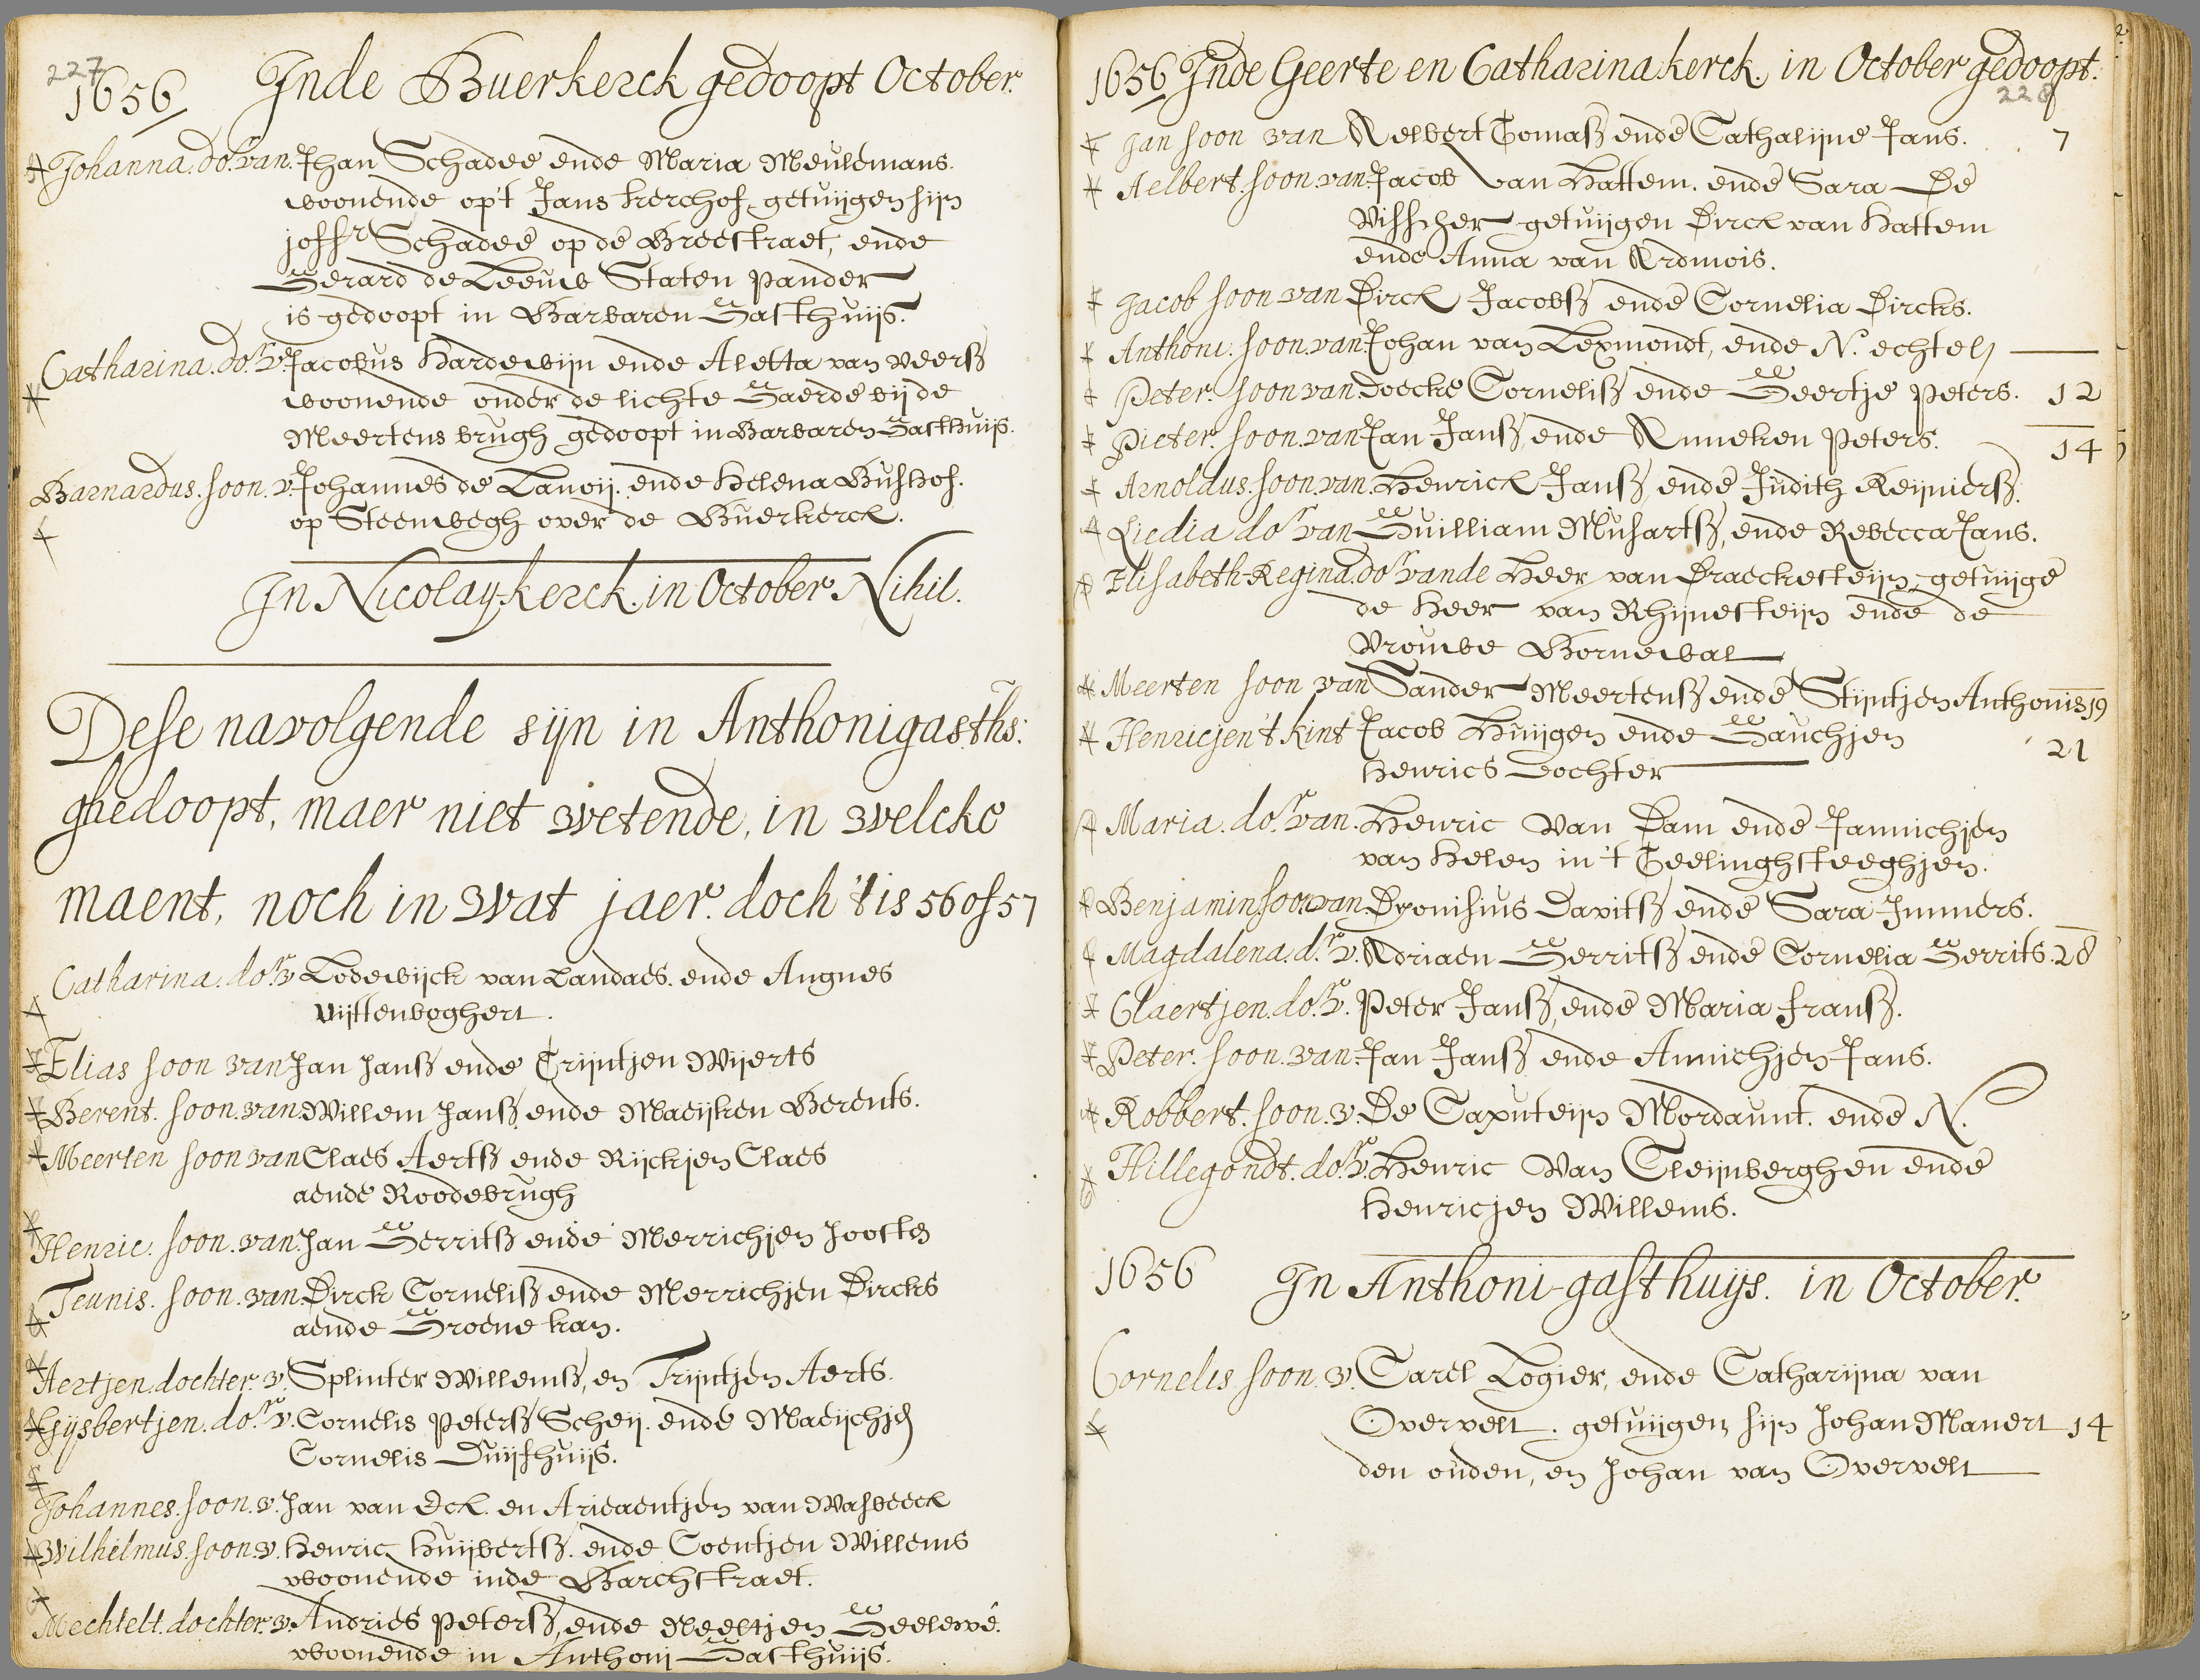 227
1656 Inde Buerkerck gedoopt October.
Johanna. do.r van. Jhan Schadee ende Maria Meulemans.
woonende op't Jans kerchof, getuijgen sijn
joffr Schadee op de Breestraet, ende
Gerard de Leeuw Staten Pander
is gedoopt in Barbaren Gasthuijs.
Catharina. do.r v. Jacobus Hardewijn ende Aletta van Veerss
woonende onder de lichte Gaerde bij de
Meertens brugh gedoopt in Barbaren Gasthuijs.
Barnardus. soon. v. Johannes de Lanoij. ende Helena Bushof.
op Steenwegh over de Buerkerck.
In Nicolay-kerck. in October Nihil.
Dese navolgende sijn in Anthonigasths:
ghedoopt, maer niet wetende, in welcke
maent, noch in wat jaer. doch 't is 56 of 57
Catharina. do.r v Lodewijck van Landaes. ende Angnes
Uijttenboghert.
Elias soon van Jan Janss ende Trijntjen Wijerts
Berent. soon. van. Willem Janss ende Maeijken Berents.
Meerten soon van Claes Aertss ende Rijckjen Claes
aende Roodebrugh
Henric. soon. van. Jan Gerritss ende Merrichjen Joosten
Teunis. soon. van. Dirck Corneliss ende Merrichjen Dircks
aende Groene kan.
Aertjen. dochter. v. Splinter Willemss, en Trijntjen Aerts.
Gijsbertjen. do.r v. Cornelis Peterss Scheij. ende Maeijchjen
Cornelis Duijfhuijs.
Johannes. soon. v. Jan van Eck. en Ariaentjen van Wasbeeck
Wilhelmus. soon. v. Henric Huijbertss. ende Coentjen Willems
woonende inde Barchstraet.
Mechtelt. dochter. v. Andries Peterss, ende Neeltjen Geelewé.
woonende in Anthoni Gasthuijs.
1656 Inde Geerte en Catharina kerck. in October gedoopt.
228
Jan soon van Aelbert Tomass ende Cathalijne Jans. 7
Aelbert. soon. van. Jacob van Hattem. ende Sara De
Visscher getuijgen Dirck van Hattem
ende Anna van Ardmois.
Jacob soon van Dirck Jacobss ende Cornelia Dircks.
Anthoni. soon. van Johan van Lexmondt, ende N. echtel
Peter. soon van. Doecke Corneliss ende Geertje Peters. 12
Pieter. soon. van Jan Janss ende Anneken Peters. 14
Arnoldus. soon. van. Henrick Janss, ende Judith Reijnierss.
Liedia do.r van Guilliam Mushartss, ende Rebecca Jans.
Elisabeth-Regina. do.r vande Heer van Draeckesteijn, getuijge
de Heer van Rhijnesteijn ende de
Vrouwe Bornewal
Meerten soon van Sander Meertenss ende Stijntjen Anthonis 19
Henricjen 't kint Jacob Huijgen ende Gauchjen 21
Henrics dochter
Maria. do.r van. Henric van Dam ende Jannichjen
van Helen in 't Geelinghsteeghjen.
Benjamin. soon van. Dyonisius Davitss ende Sara Immers.
Magdalena. d.r v. Adriaen Gerritss ende Cornelia Gerrits. 28
Claertjen. do.r v. Peter Janss, ende Maria Franss.
Peter. soon. van. Jan Janss ende Annichjen Jans.
Robbert. soon. v. De Caputeijn Mordaunt. ende N.
Hillegondt. do.r v. Henric van Cleijnberghen ende
Henricjen Willems.
1656 In Anthoni-gasthuijs. in October.
Cornelis soon. v. Carel Logier, ende Catharijna van
Overvelt. getuijgen sijn Johan Manert 14
den ouden, en Johan van Overvelt